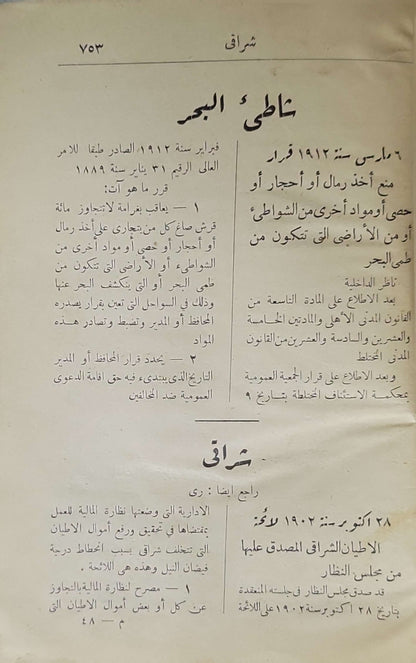 شراقى
٧٥٣
شاطئ البحر
٦ مارس سنة ١٩١٢ قرار
منع أخذ رمال أو أحجار أو
حصى أو مواد أخرى من الشواطئ
أو من الأراضى التى تتكون من
طمى البحر
ناظر الداخلية
بعد الاطلاع على المادة التاسعة من
القانون المدنى الأهلى والمادتين الخامسة
والعشرين والسادسة والعشرين من القانون
المدنى المختلط
وبعد الاطلاع على قرار الجمعية العمومية
بمحكمة الاستئناف المختلطة بتاريخ ٩
فبراير سنة ١٩١٢ الصادر طبقا للامر
العالى الرقيم ٣١ يناير سنة ١٨٨٩
قرر ما هو آت:
١ — يعاقب بغرامة لاتتجاوز مائة
قرش صاغ كل من يتجارى على أخذ رمال
أو أحجار أو حصى أو مواد أخرى من
الشواطىء أو الأراضى التى تتكون من
طمى البحر أو التى ينكشف البحر عنها
وذلك فى السواحل التى تعين بقرار يصدره
المحافظ أو المدير وتضبط وتصادر هذه
المواد
٢ — يحدد قرار المحافظ أو المدير
التاريخ الذى يبتدىء فيه حق اقامة الدعوى
العمومية ضد المخالفين
شراقى
راجع ايضا : رى
٢٨ اكتوبر سنة ١٩٠٢ لائحة
الاطيان الشراقى المصدق عليها
من مجلس النظار
قد صدق مجلس النظار فى جلسته المنعقدة
بتاريخ ٢٨ اكتوبر سنة ١٩٠٢ على اللائحة
الادارية التى وضعتها نظارة المالية للعمل
بمقتضاها فى تحقيق ورفع أموال الاطيان
التى تتخلف شراقى بسبب انحطاط درجة
فيضان النيل وهذه هى اللائحة .
١ — مصرح لنظارة المالية بالتجاوز
عن كل أو بعض أموال الاطيان التى
م — ٤٨